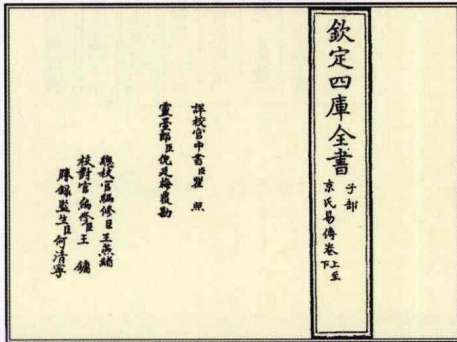 欽定四庫全書
子部
京氏易傳卷上至下
詳校官中書臣瞿照
靈臺郎臣倪廷梅覆勘
總校官編修臣王燕緒
校對官編修臣王鏞
謄錄監生臣何清寧